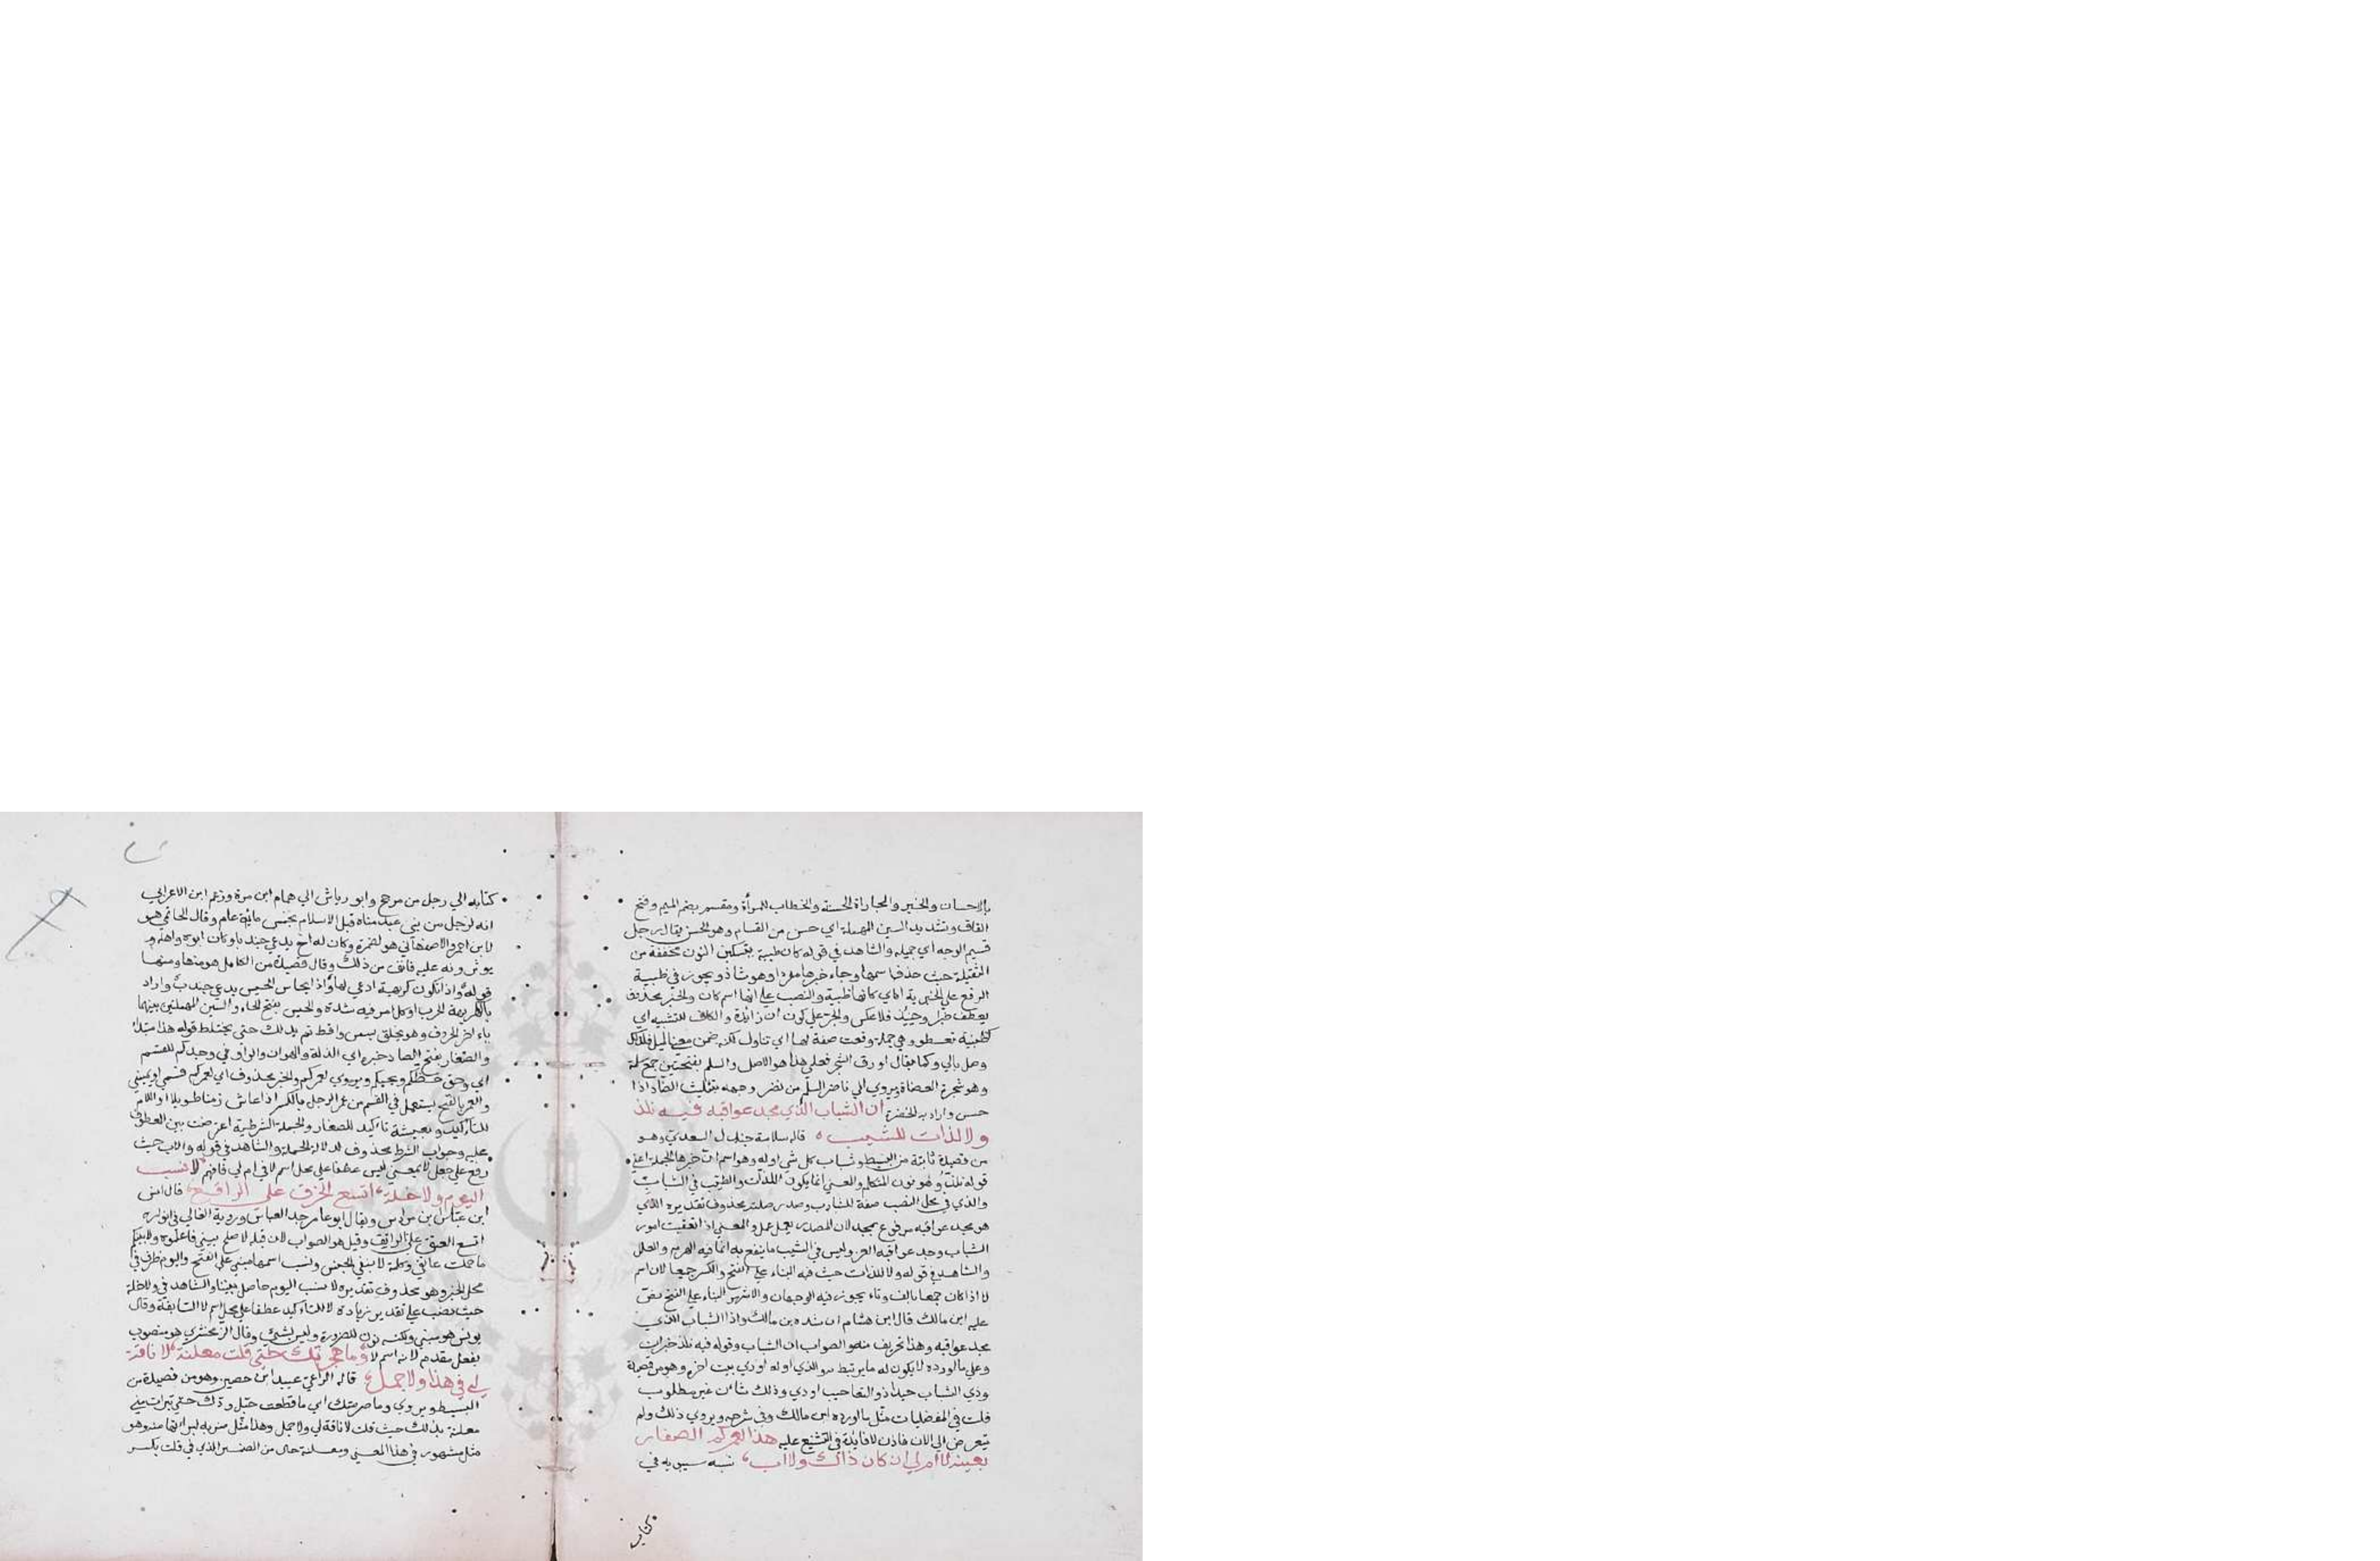 بالاحسان والخير والمجاراة الحسنة والخطاب للمرأة ومقسم بضم الميم وفتح
القاف وتشديد السين المهملة اي حسن من القسام وهو الحسن يقال رجل
قسيم الوجه اي جميله والشاهد في قوله كان ظبية بتسكين النون مخففة من
الثقيلة حيث حذف اسمها وجاء خبرها مفردا وهو شاذ ويجوز في ظبية
الرفع على الخبرية اي كانها ظبية والنصب على انها اسم كان والخبر محذوف
فلا عكس والجر على كون ان زائدة والكاف للتشبيه اي
كظبية تعطو وهي جملة وقعت صفة لها اي تتناول لكنه ضمن معنى الميل فلذلك
وصل بالي وكما يقال اورق الشجر فعلى هذا هو الاصل والسلم بفتحتين جمع سلمة
وهو شجرة العضاة ويروي الى ناضر السلم من نضر وجهه بتثليث الضاد اذا
حسن واراد به الخضرة ان الشباب الذي مجد عواقبه فيه نلذ
ولا لذات للشيب ه قاله سلامة جندل السعدي وهو
من قصيدة من البسيط وشباب كل شي اوله وهو اسم ان خبرها الجملة اعني
قوله نلذ وهو نون المتكلم والمعنى انما يكون اللذات والطيب في الشباب
والذي في محل النصب صفة للشباب وصدر صلته محذوف تقديره الذي
هو مجد عواقبه مرفوع بمجد لان المصدر يعمل عمله والمعنى اذا تعقبت امور
الشباب وجد عواقبه العز وليس في الشيب ما ينفع به انما فيه الهرم والعلل
والشاهد في قوله ولا لذات حيث فيه البناء على الفتح والكسر جميعا لان اسم
لا اذا كان جمعا بالف وتاء يجوز فيه الوجهان والاشهر البناء على الفتح نص
عليه ابن مالك قال ابن هشام انشده بن مالك واذا الشباب الذي
مجد عواقبه وهذا تحريف منه والصواب ان الشباب وقوله فيه نلذ خبر ان
وعلى ما اورده لا يكون له ما يرتبط به والذي اوله اودي بيت اخر وهو من قصيدة
وذي الشباب حميدا ذو التعاجيب اودي وذلك شاو غير مطلوب
قلت في المفضليات مثل ما اورده ابن مالك وفي شرحه ويروي ذلك ولم
يتعرض الى الان فاذن لا فائدة في التشنيع عليه هذا لعمركم الصغار
بعينه لا ام لي ان كان ذاك ولا اب، نسبه سيبويه في
كتابه
كتابه الي رجل من مذحج وابو رياش الي همام ابن مرة وزعم ابن الاعرابي
انه لرجل من بني عبد مناه قبل الاسلام بخمس مائة عام وقال الحاتمي هو
لابن احمر والاصفهاني هو لضمرة وكان له اخ يدعي جندبا وكان ابوه واهله
يوثرونه عليه فانف من ذلك وقال قصيدة من الكامل هو منها ومنها
قوله واذا تكون كريهة ادعي لها واذا يحاس الحيس يدعي جندب واراد
بالكريهة الحرب او كل امر فيه شدة والحيس بفتح الحاء والسين المهملتين بينهما
ياء اخر الحروف وهو يخلق بسمن واقط ثم يدلك حتى يختلط قوله هذا مبتدا
والصغار بفتح الصاد خبره اي الذلة والهوان والواو في وجدكم للقسم
اي وحق حظكم ويروي لعمركم والخبر محذوف اي لعمركم قسمي او يميني
والعمر بالفتح يستعمل في القسم من عمر الرجل بالكسر اذا عاش زمنا طويلا واللام
للتاكيد وبعينه تاكيد للصغار والجملة الشرطية اعترضت بين العطوف
عليه وجواب الشرط محذوف لدلالة الجملة والشاهد في قوله والاب حيث
رفع على جعل لا بمعنى ليس عطفا على محل اسم لا في ام لي فافهم لا نسب
اليوم ولا خلة، اتسع الخرق على الراقع، قال انس
ابن عباس بن مرداس ويقال ابو عامر جد العباس ورواية القالي في نوادره
اتسع الفتق على الراتق وقيل هو الصواب لان قبله لا صلح بيني فاعلموه ولا بينكم
ما حملت عاتقي وكلمة لا لنفي الجنس ونسب اسمها مبني على الفتح واليوم ظرف في
محل الخبر وهو محذوف تقديره لا نسب اليوم حاصل بيننا والشاهد في ولا خلة
حيث نصب على تقدير زيادة لا للتاكيد عطفا على محل اسم لا السابقة وقال
يونس هو مبني ولكنه نون للضرورة وليس بشئ وقال الزمخشري هو منصوب
بفعل مقدم لا انه اسم لا وما هجرتك حتى قلت معلنة، لا ناقة
لي في هذا ولا جمل، قاله الراعي عبيد ابن حصين وهو من قصيدة من
البسيط ويروي وما صرمتك اي ما قطعت حبل ودك حتى تبرات مني
معلنة بذلك حيث قلت لا ناقة لي ولا جمل وهذا مثل ضربه لبراتها منه وهو
مثل مشهور في هذا المعنى ومعلنة حال من الضمير الذي في قلت بكسر